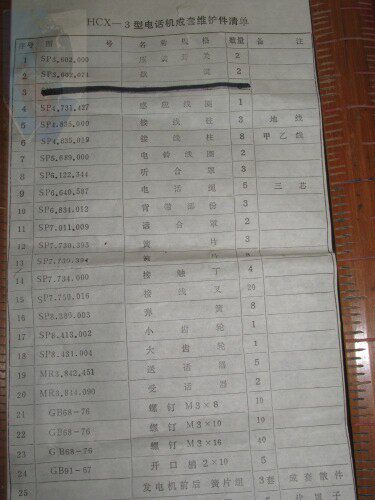 HCX—3型电话机成套维护件清单
序号 图 号 名 称 规 格 数量 备 注
1 SP3,602,000 2
2 SP3,602,074 2
3
4 SP4,731,427 感 应 线 圈 1
5 SP4,835,009 接 线 柱 3 地 线
6 SP4,835,019 接 线 柱 8 甲 乙 线
7 SP5,689,000 电 铃 线 圈 2
8 SP6,122,344 听 合 罩 3
9 SP6,649,587 电 话 绳 5 三 芯
10 SP6,834,012 背 带 部 份 3
11 SP7,011,009 话 合 罩 2
12 SP7,730,393 簧 片 3
13 SP7,730,394 簧 片 3
14 SP7,734,000 接 触 丁 4
15 SP7,750,016 接 线 叉 20
16 SP8,289,003 弹 簧 8
17 SP8,413,002 小 齿 轮 1
18 SP8,431,004 大 齿 轮 1
19 MR3,842,451 送 话 器 5
20 MR3,844,090 受 话 器 2
21 GB68-76 螺 钉 M3×8 10
22 GB68-76 螺 钉 M3×10 10
23 GB68-76 螺 钉 M3×16 40
24 GB91-67 开 口 销 2×10 5
25 发电机前后 簧片组 3套 成套散件